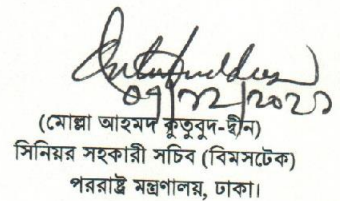 (মোল্লা আহমদ কুতুবুদ-দ্বীন)
সিনিয়র সহকারী সচিব (বিমসটেক)
পররাষ্ট্র মন্ত্রণালয়, ঢাকা।